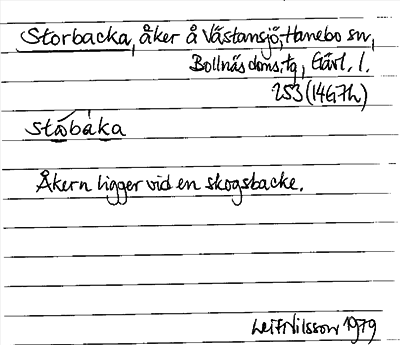 Storbacka, åker å Västansjö, Hanebo sn,
Bollnäs doms. tg, Gävl. l.
253 (14G7h)
sto̅bàka
Åkern ligger vid en skogsbacke.
Leif Nilsson 1979